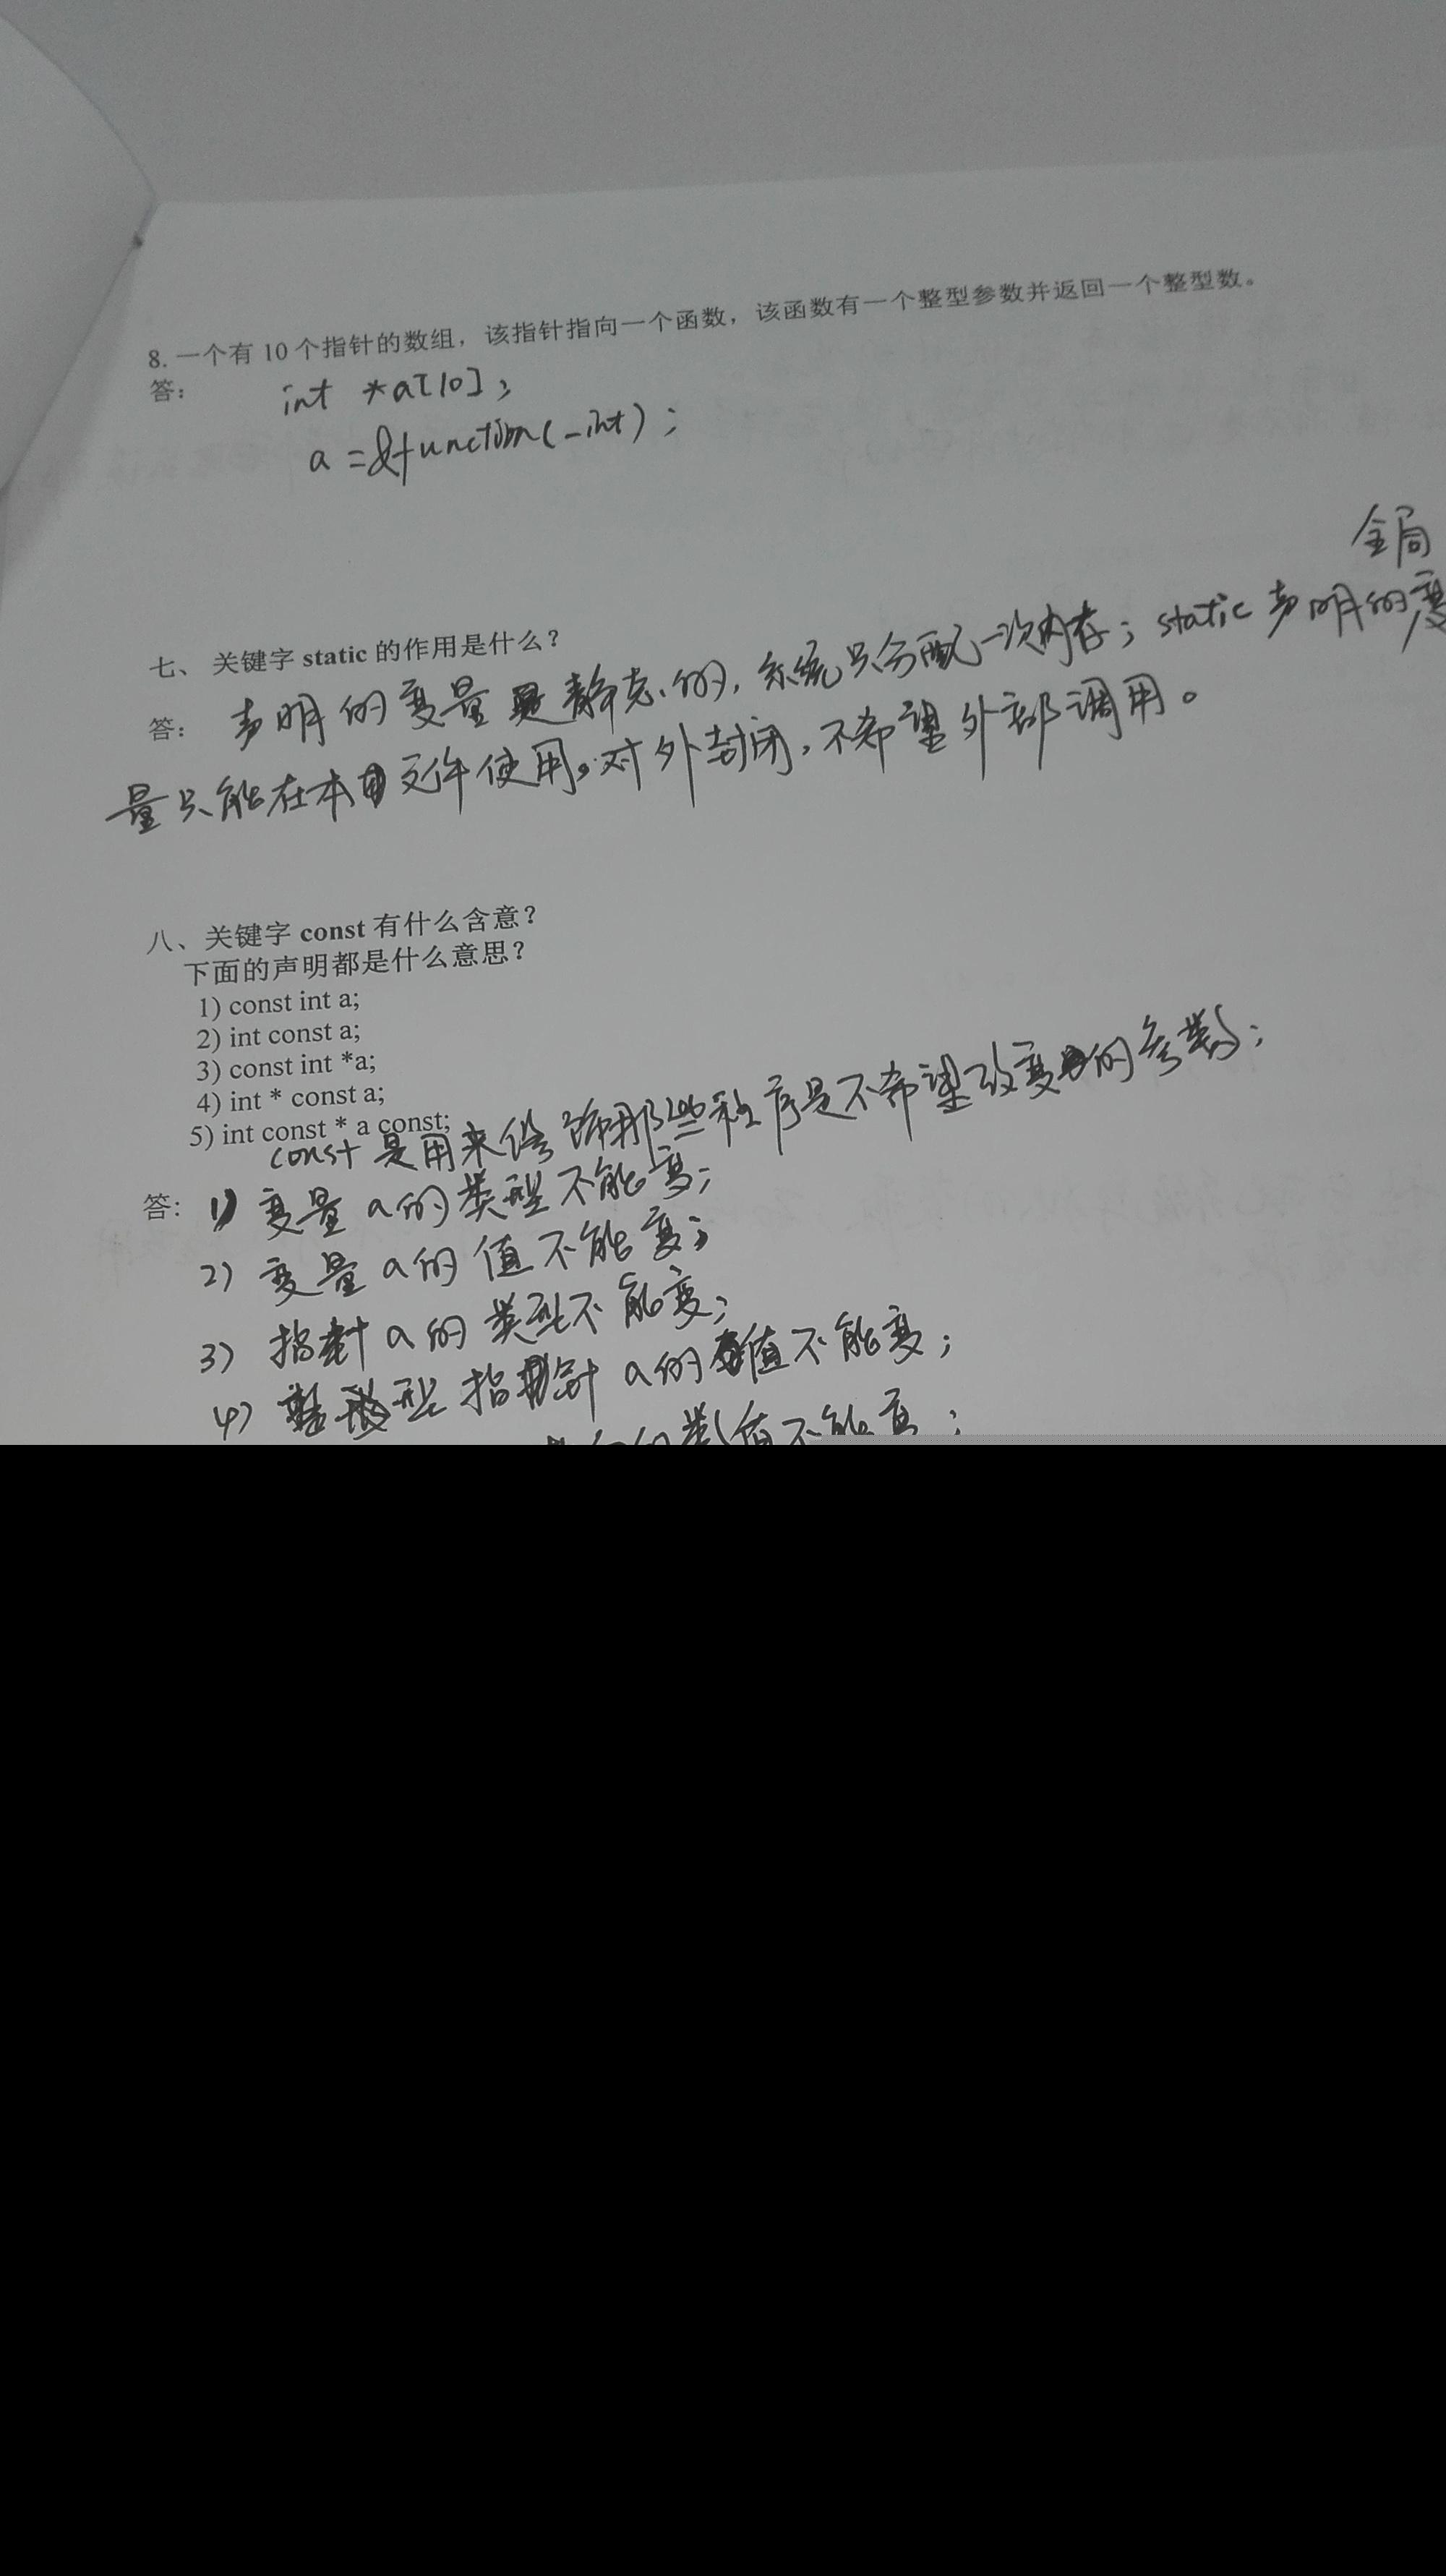 8. 一个有 10 个指针的数组，该指针指向一个函数，该函数有一个整型参数并返回一个整型数。
答： int *a[10];
a = &function(_int);
全局
七、 关键字 static 的作用是什么？
答： 声明的变量是静态的，系统只分配一次内存；static 声明的变
量只能在本文件使用。对外封闭，不希望外部调用。
八、关键字 const 有什么含意？
下面的声明都是什么意思？
1) const int a;
2) int const a;
3) const int *a;
4) int * const a;
5) int const * a const;
const 是用来修饰那些程序是不希望改变的参数；
答: 1) 变量 a的类型不能变；
2) 变量 a的 值不能变；
3) 指针 a的 类型不能变；
4) 整型 指针 a的值不能变；
值不能变；